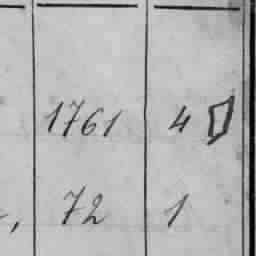 1761 4 0
72 1